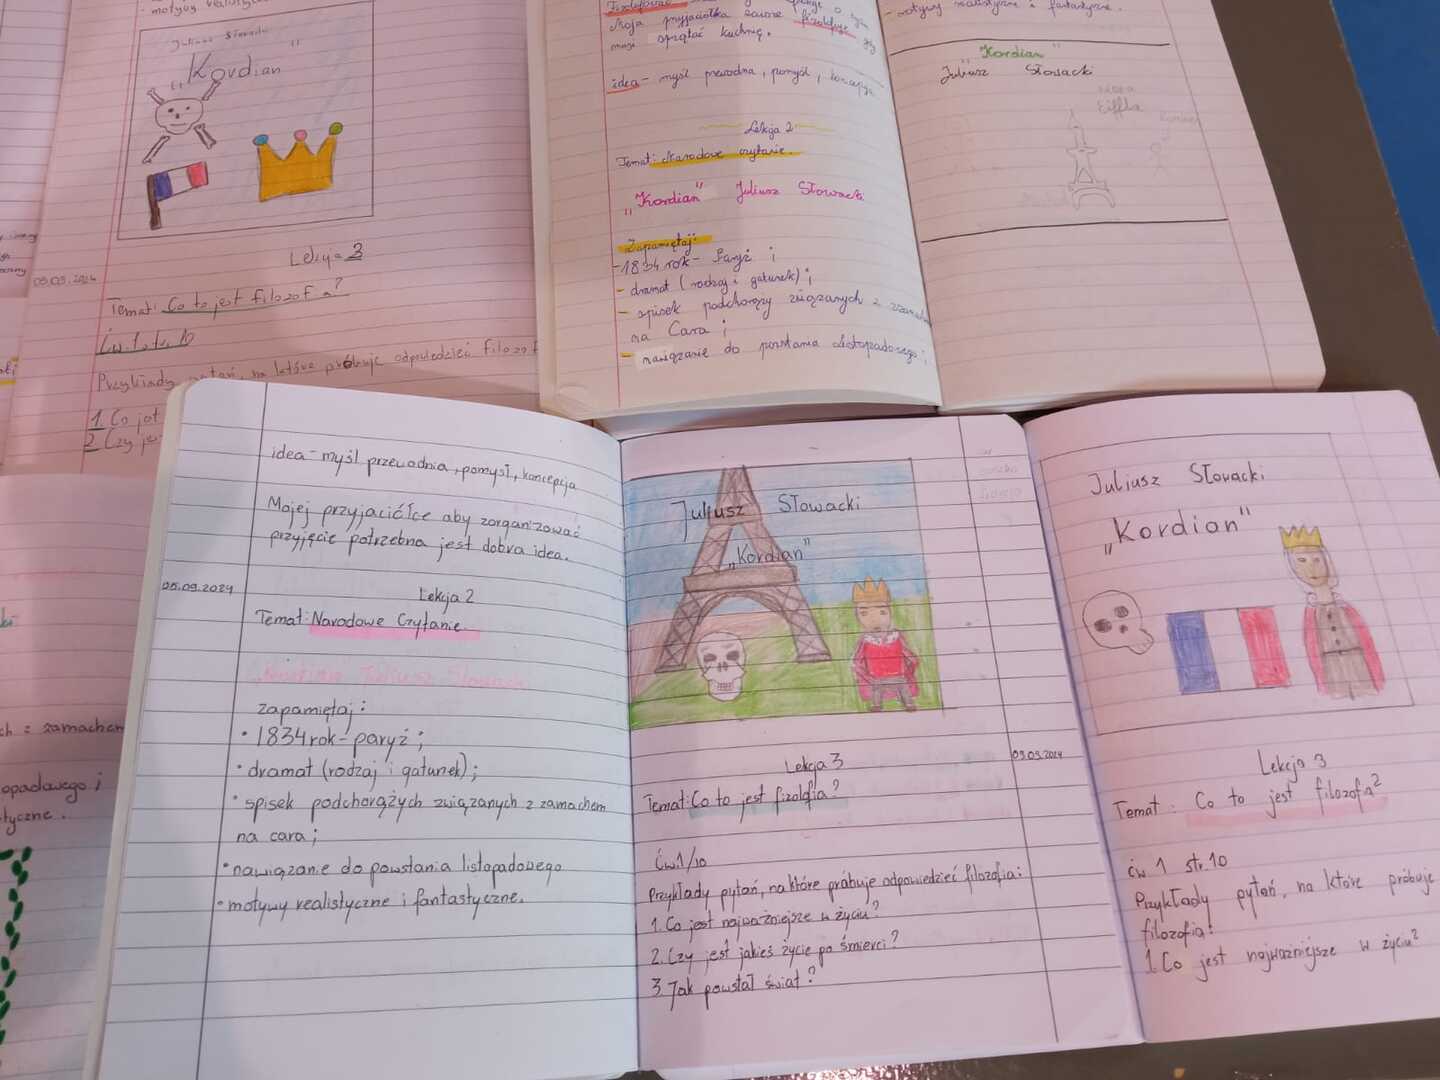 - motywy
Juliusz Słowacki
„Kordian"
Lekcja 3
09.09.2024
Temat: Co to jest filozofia?
Ćw. 1 str. 10
Przykłady pytań, na które próbuje odpowiedzieć
1. Co jest
2. Czy
Moja przyjaciółka zawsze filozofuje, gdy
musi sprzątać kuchnię.
idea - myśl przewodnia, pomysł, koncepcja
Lekcja 2
Temat: Narodowe czytanie.
„Kordian" Juliusz Słowacki
Zapamiętaj:
- 1834 rok - Paryż ;
- dramat (rodzaj i gatunek) ;
- spisek podchorąży związanych z
na Cara ;
- nawiązanie do powstania listopadowego ;
- motywy realistyczne i fantastyczne.
„Kordian"
Juliusz Słowacki
Wieża
Eiffla
zamachem
idea - myśl przewodnia, pomysł, koncepcja
Mojej przyjaciółce aby zorganizować
przyjęcie potrzebna jest dobra idea.
05.09.2024
Lekcja 2
Temat: Narodowe Czytanie.
„Kordian" Juliusz Słowacki
zapamiętaj:
• 1834 rok - paryż ;
• dramat (rodzaj i gatunek);
• spisek podchorążych związanych z zamachem
na cara ;
• nawiązanie do powstania listopadowego
• motywy realistyczne i fantastyczne.
Juliusz Słowacki
„Kordian"
Lekcja 3
09.09.2024
Temat: Co to jest fizolfia?
Ćw.1/10
Przykłady pytań, na które próbuje odpowiedzieć filozofia:
1. Co jest najważniejsze w życiu?
2. Czy jest jakieś życie po śmierci?
3. Jak powstał świat?
Juliusz Słowacki
„Kordian"
Lekcja 3
Temat: Co to jest filozofia?
ćw 1 str.10
Przykłady pytań, na które próbuje
filozofia:
1. Co jest najważniejsze w życiu?